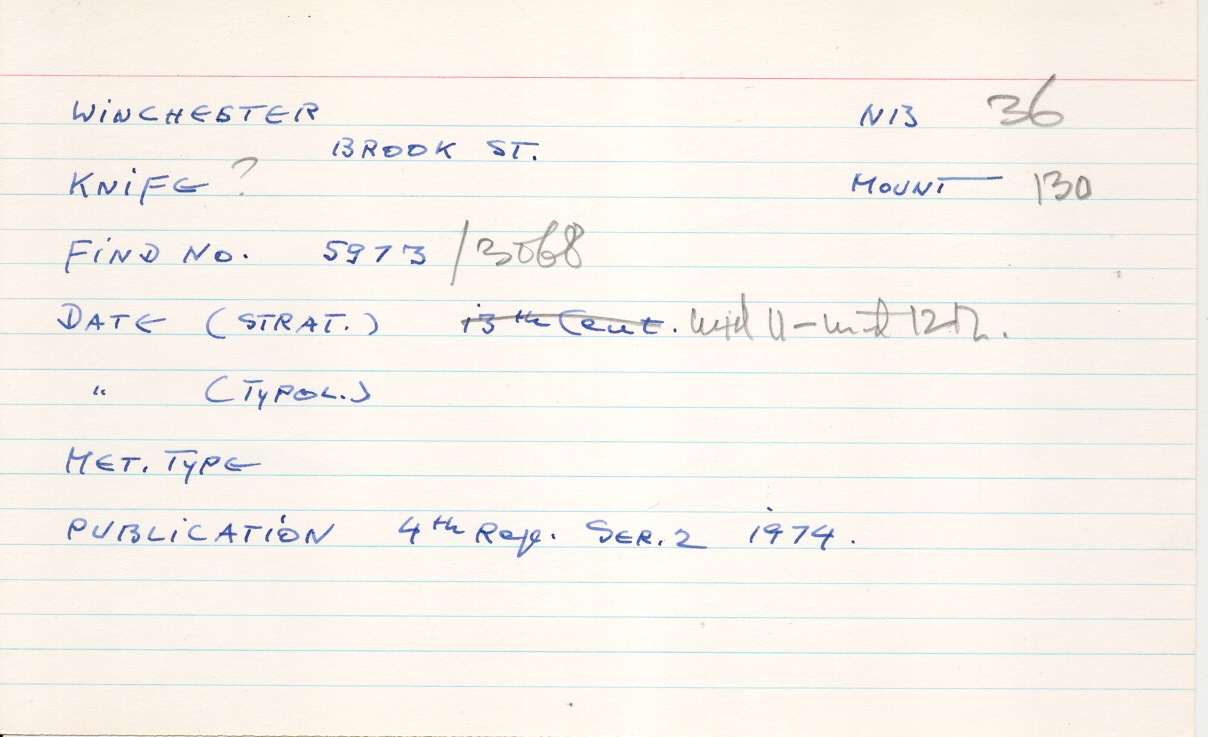 WINCHESTER NB 36
BROOK ST.
KNIFE ? MOUNT 130
FIND No. 5973 /3068
DATE (STRAT.) 13th Cent. mid 11 – mid 12th.
" (TYPOL.)
MET. TYPE
PUBLICATION 4th Rep. SER. 2 1974.